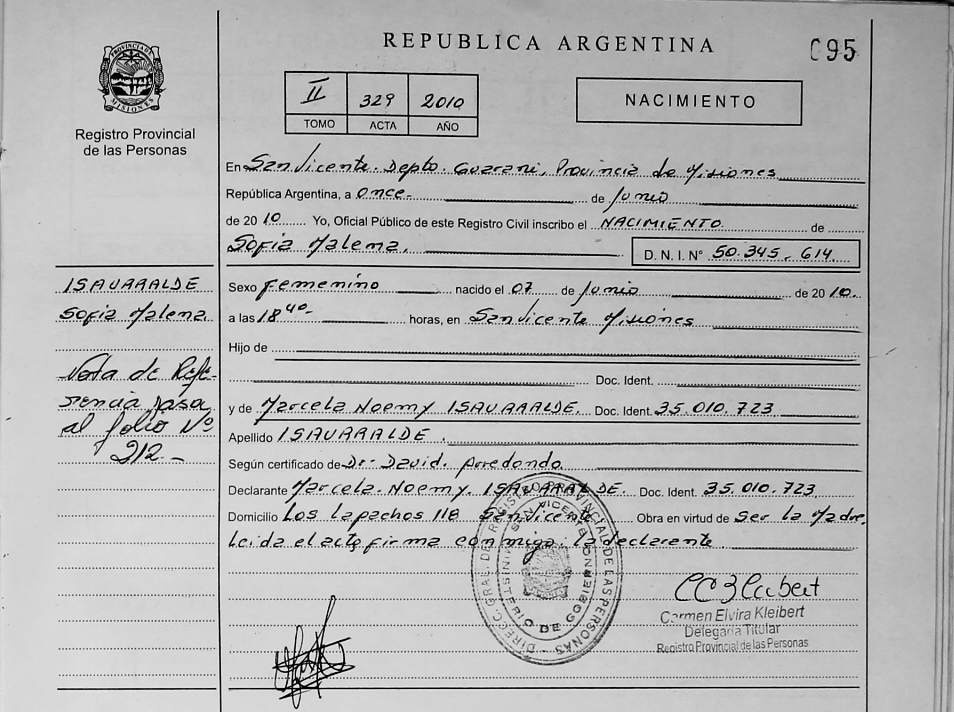 REPUBLICA ARGENTINA
095
PROVINCIA DE MISIONES
Registro Provincial
de las Personas
II 329 2010
TOMO ACTA AÑO
NACIMIENTO
En San Vicente. Depto. Guarani, Provincia de Misiones
República Argentina, a Once de Junio
de 2010 Yo, Oficial Público de este Registro Civil inscribo el NACIMIENTO de
Sofia Malena.
D. N. I. N° 50.345.614
ISAURRALDE
Sofia Malena
Nota de Refe-
rencia pasa
al folio Nº
212
Sexo femenino nacido el 07 de Junio de 2010.
a las 18 40 horas, en San Vicente Misiones
Hijo de
Doc. Ident.
y de Marcela Noemy ISAURRALDE. Doc. Ident. 35.010.723
Apellido ISAURRALDE.
Según certificado de Dr. David. Arredondo.
Declarante Marcela. Noemy. ISAURRALDE. Doc. Ident. 35.010.723
Domicilio Los Lapachos 118 San Vicente Obra en virtud de Ser la Madre,
Leida el acta firma conmigo la declarente
DIRECC. GRAL. DEL REGISTRO PROVINCIAL DE LAS PERSONAS
SAN VICENTE
MINISTERIO DE GOBIERNO
Carmen Elvira Kleibert
Delegada Titular
Registro Provincial de las Personas